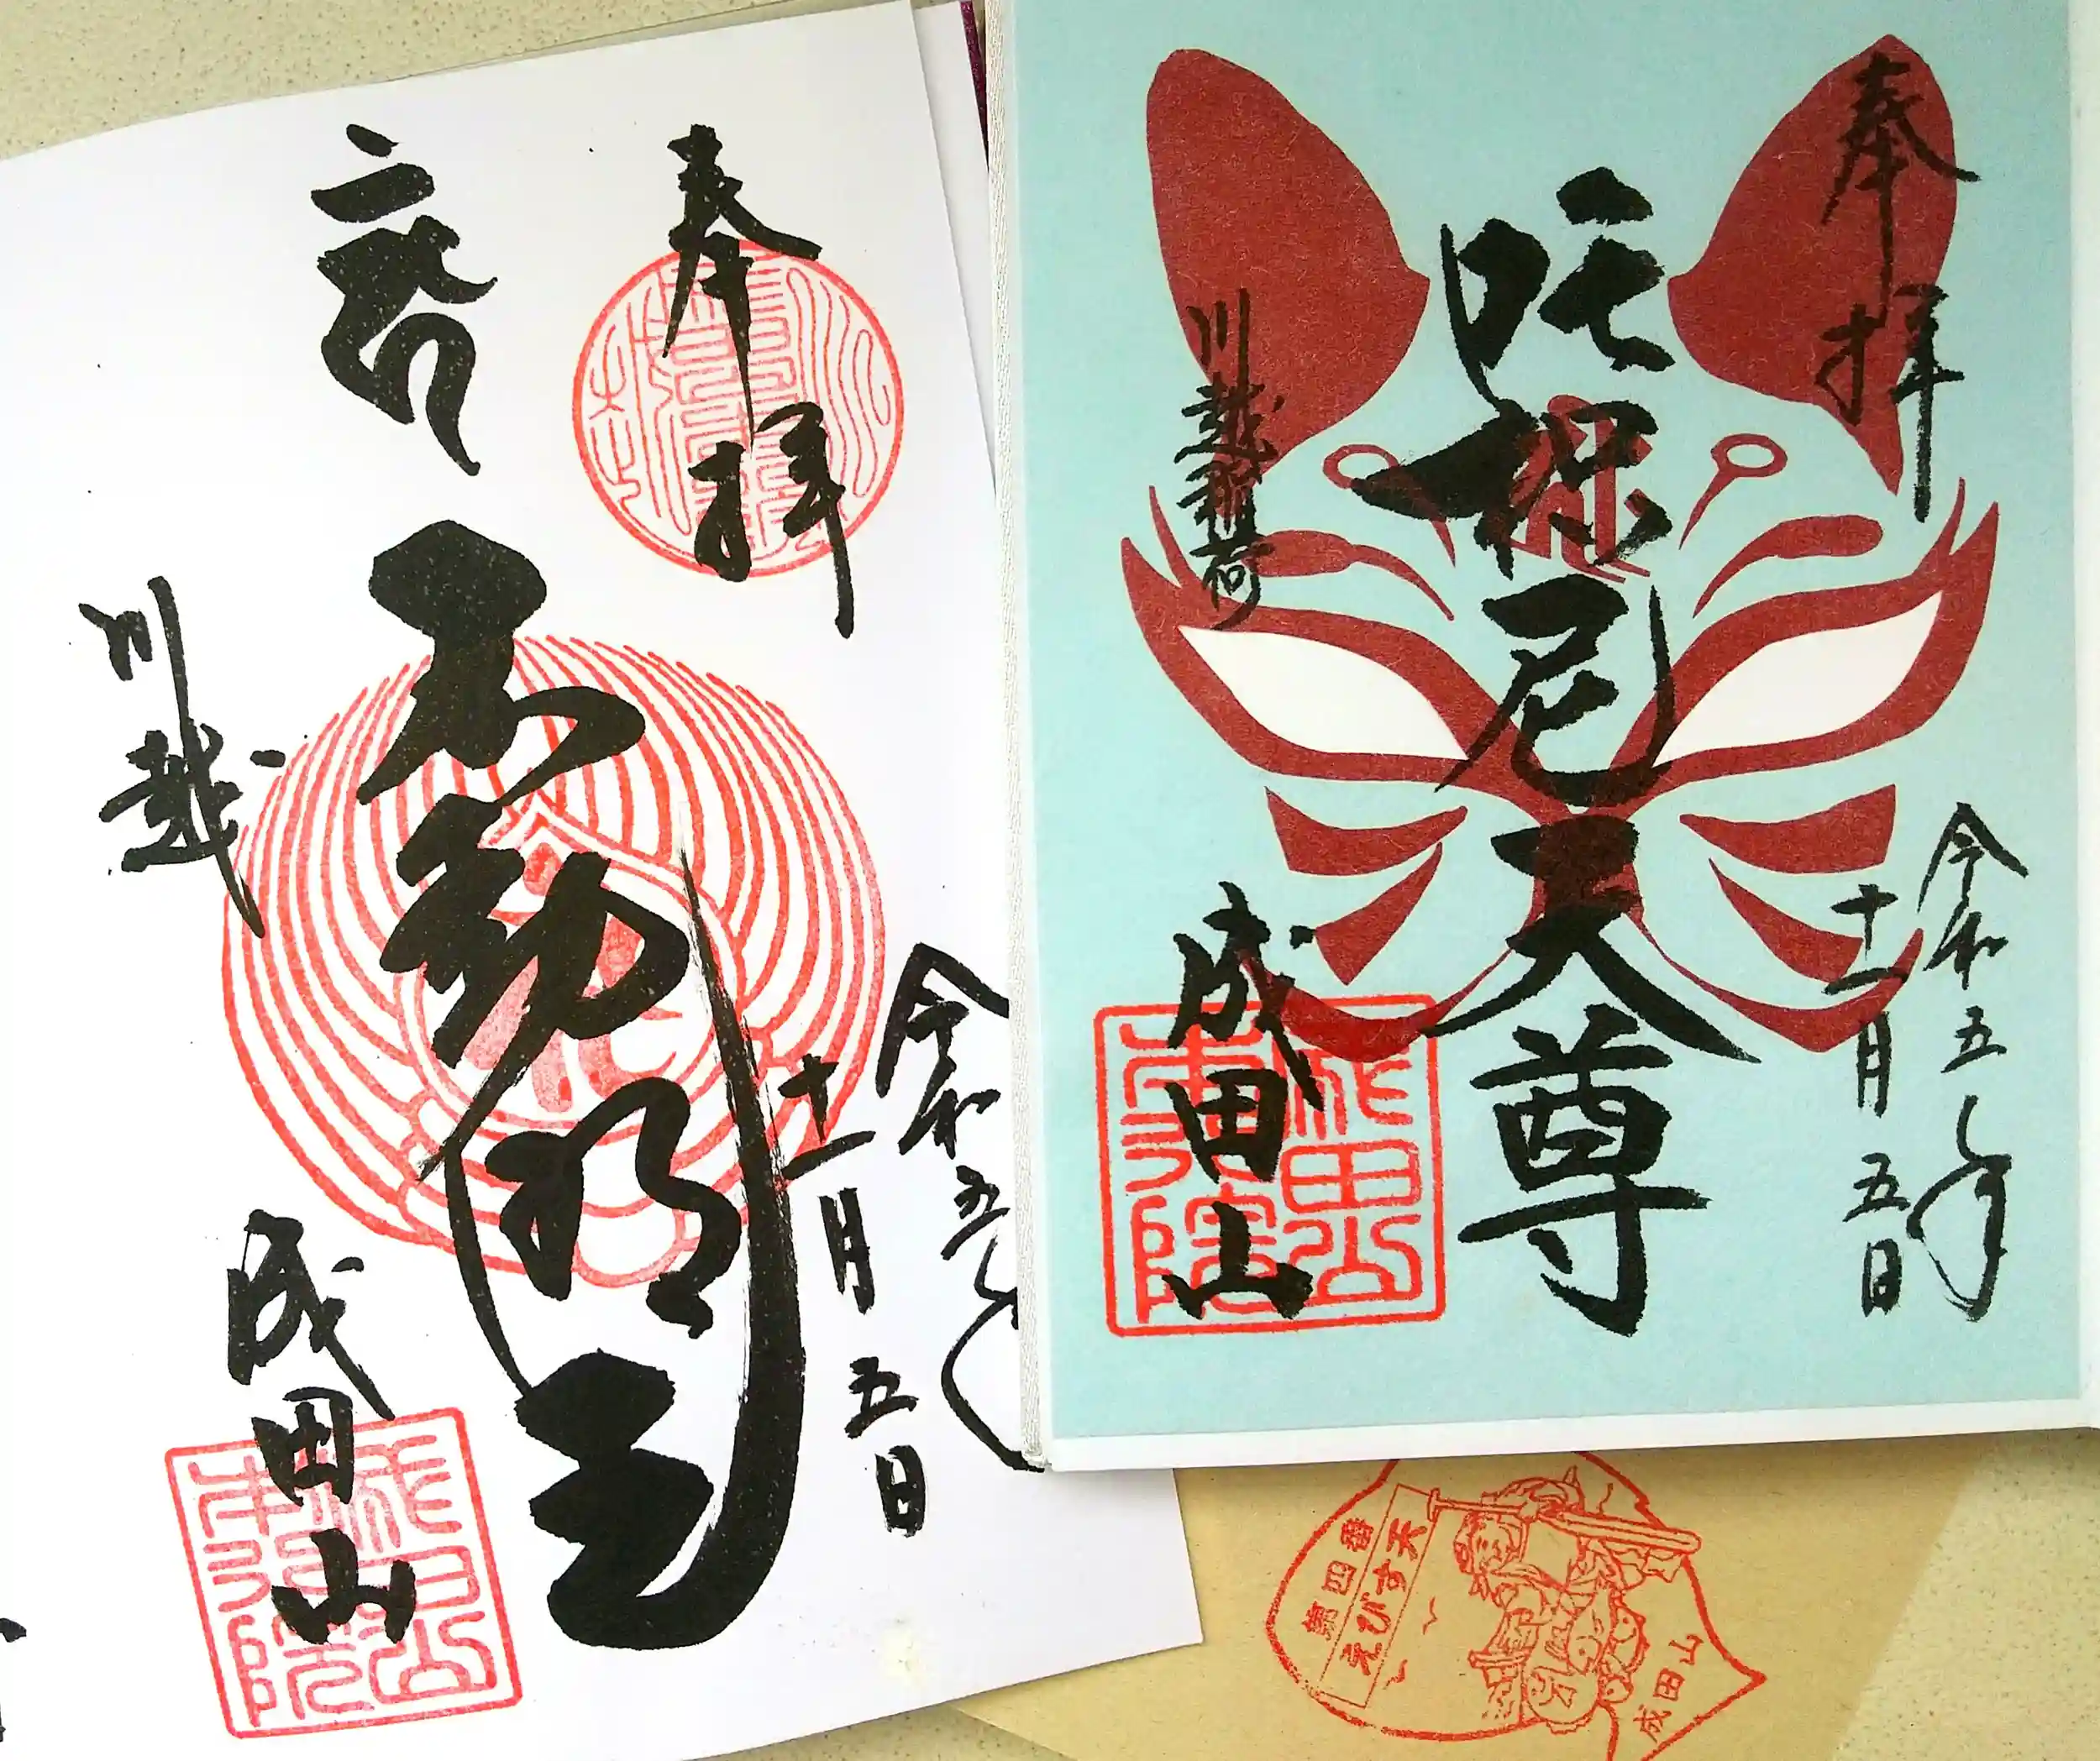 奉拝
令和五年
十一月五日
不動明王
川越
成田山
奉拝
令和五年
十一月五日
吒枳尼天尊
川越稲荷
成田山
成田山本行院
成田山本行院
第四番
えびす天
成田山